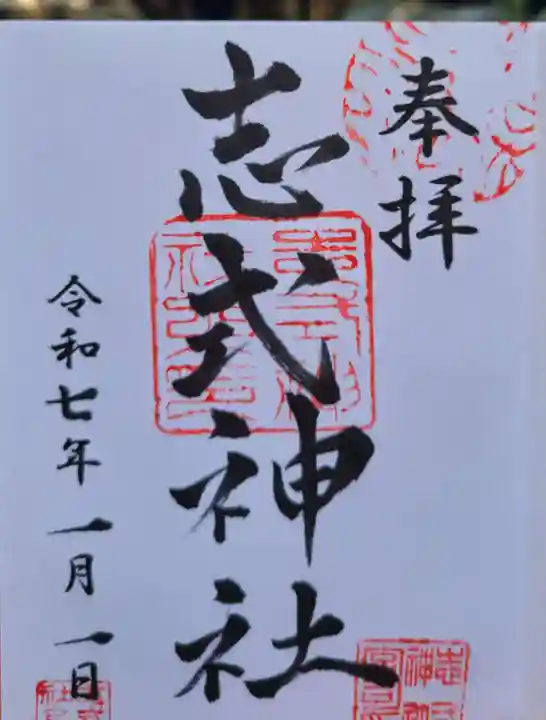 奉拝
志式神社
令和七年一月一日